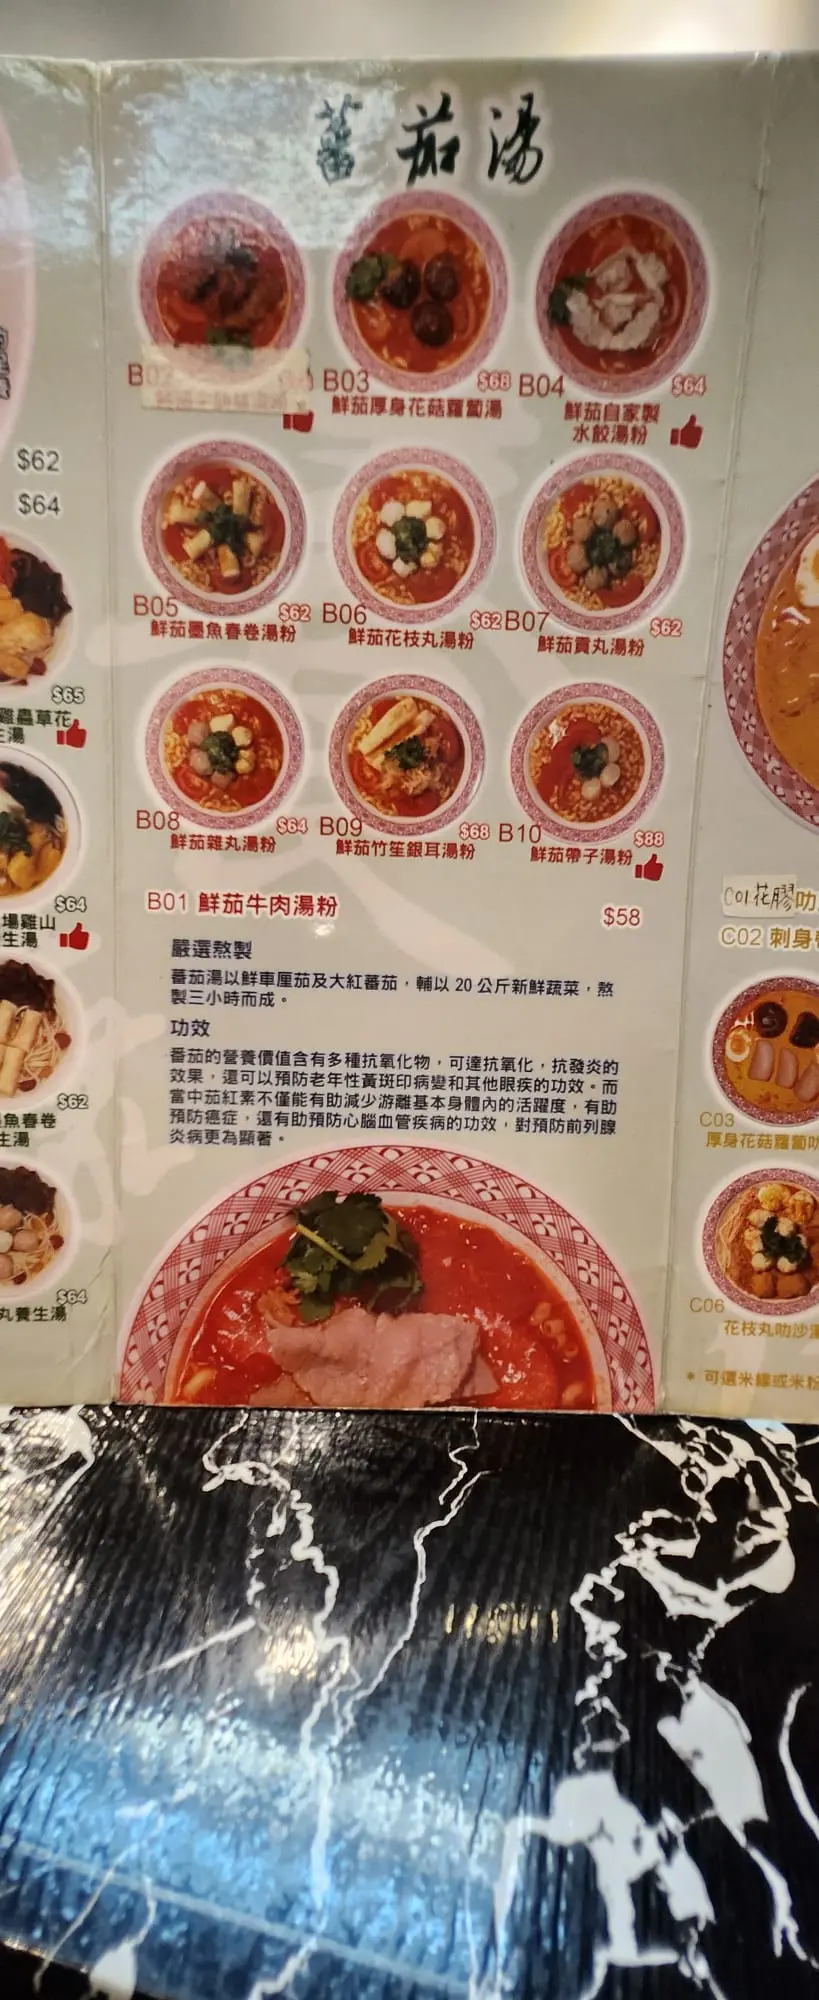 蕃茄湯
B02
B03 $68
鮮茄厚身花菇蘿蔔湯
B04 $64
鮮茄自家製
水餃湯粉
B05 $62
鮮茄墨魚春卷湯粉
B06 $62
鮮茄花枝丸湯粉
B07 $62
鮮茄貢丸湯粉
B08 $64
鮮茄雜丸湯粉
B09 $68
鮮茄竹笙銀耳湯粉
B10 $88
鮮茄帶子湯粉
B01 鮮茄牛肉湯粉 $58
嚴選熬製
蕃茄湯以鮮車厘茄及大紅蕃茄，輔以 20 公斤新鮮蔬菜，熬
製三小時而成。
功效
番茄的營養價值含有多種抗氧化物，可達抗氧化，抗發炎的
效果，還可以預防老年性黃斑印病變和其他眼疾的功效。而
當中茄紅素不僅能有助減少游離基本身體內的活躍度，有助
預防癌症，還有助預防心腦血管疾病的功效，對預防前列腺
炎病更為顯著。
$62
$64
$65
雞蟲草花
生湯
$64
場雞山
生湯
$62
魚春卷
生湯
$64
丸養生湯
C01花膠叻
C02 刺身
C03
厚身花菇蘿蔔叻
C06
花枝丸叻沙湯
* 可選米線或米粉